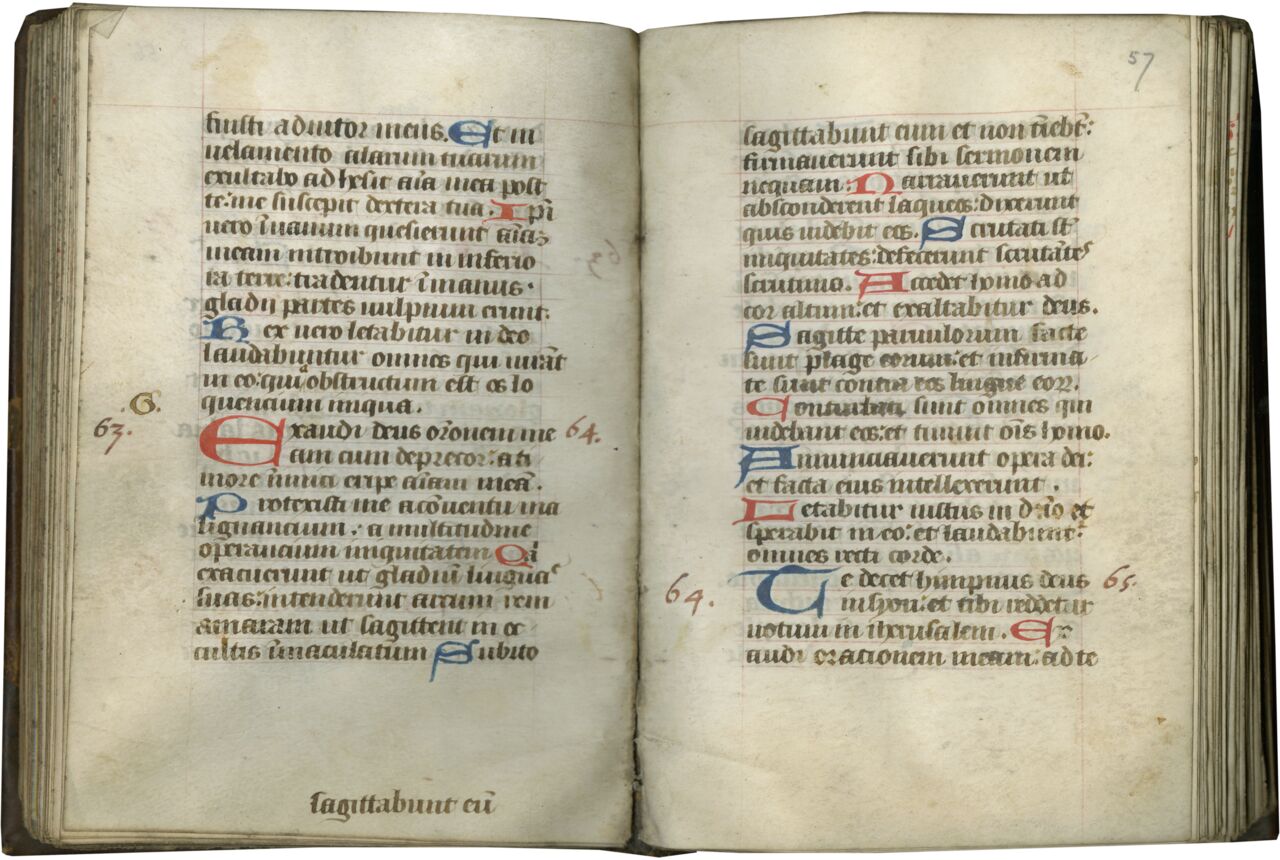 fuisti adiutor meus. Et in
uelamento alarum tuarum
exultabo adhesit aīa mea post
te: me suscepit dextera tua. Ip̄i
uero īuanum quesierunt aīaꝫ
meam introibunt in inferio
ra terre: tradentur īmanus
gladii partes uulpium erunt.
Rex uero letabitur in deo
laudabuntur omnes qui iurāt
in eo: quia obstructum est os lo
quencium iniqua.
.G.
63. Exaudi deus or̄onem me 64.
eam cum deprecor: a ti
more inimici eripe aīam meā.
Protexisti me acōuentu ma
lignancium: a multitudine
operancium iniquitatem Qīa
exacuerunt ut gladiū linguas
suas: intenderunt arcum rem
amaram ut sagittent in oc
cultis īmaculatum Subito
sagittabunt eū
57
sagittabunt eum et non tīebt̄:
firmauerunt sibi sermonem
nequam: Narrauerunt ut
absconderent laqueos: dixerunt
quis uidebit eos. Scrutati st̄
iniquitates: defecerunt scrutātes
scrutinio. Accedet homo ad
cor altum: et exaltabitur deus.
Sagitte paruulorum facte
sunt plage eorum: et infirma
te sunt contra eos lingue eoꝝ.
Conturbati sunt omnes qui
uidebant eos: et timuit oīs homo.
Annunciauerunt opera dei:
et facta eius intellexerunt.
Letabitur iustus in dn̄o et
sperabit in eo: et laudabuntur
omnes recti corde.
64. Te decet himpnus deus 65.
in syon: et tibi reddetur
uotum in iherusalem. Ex
audi orationem meam: ad te